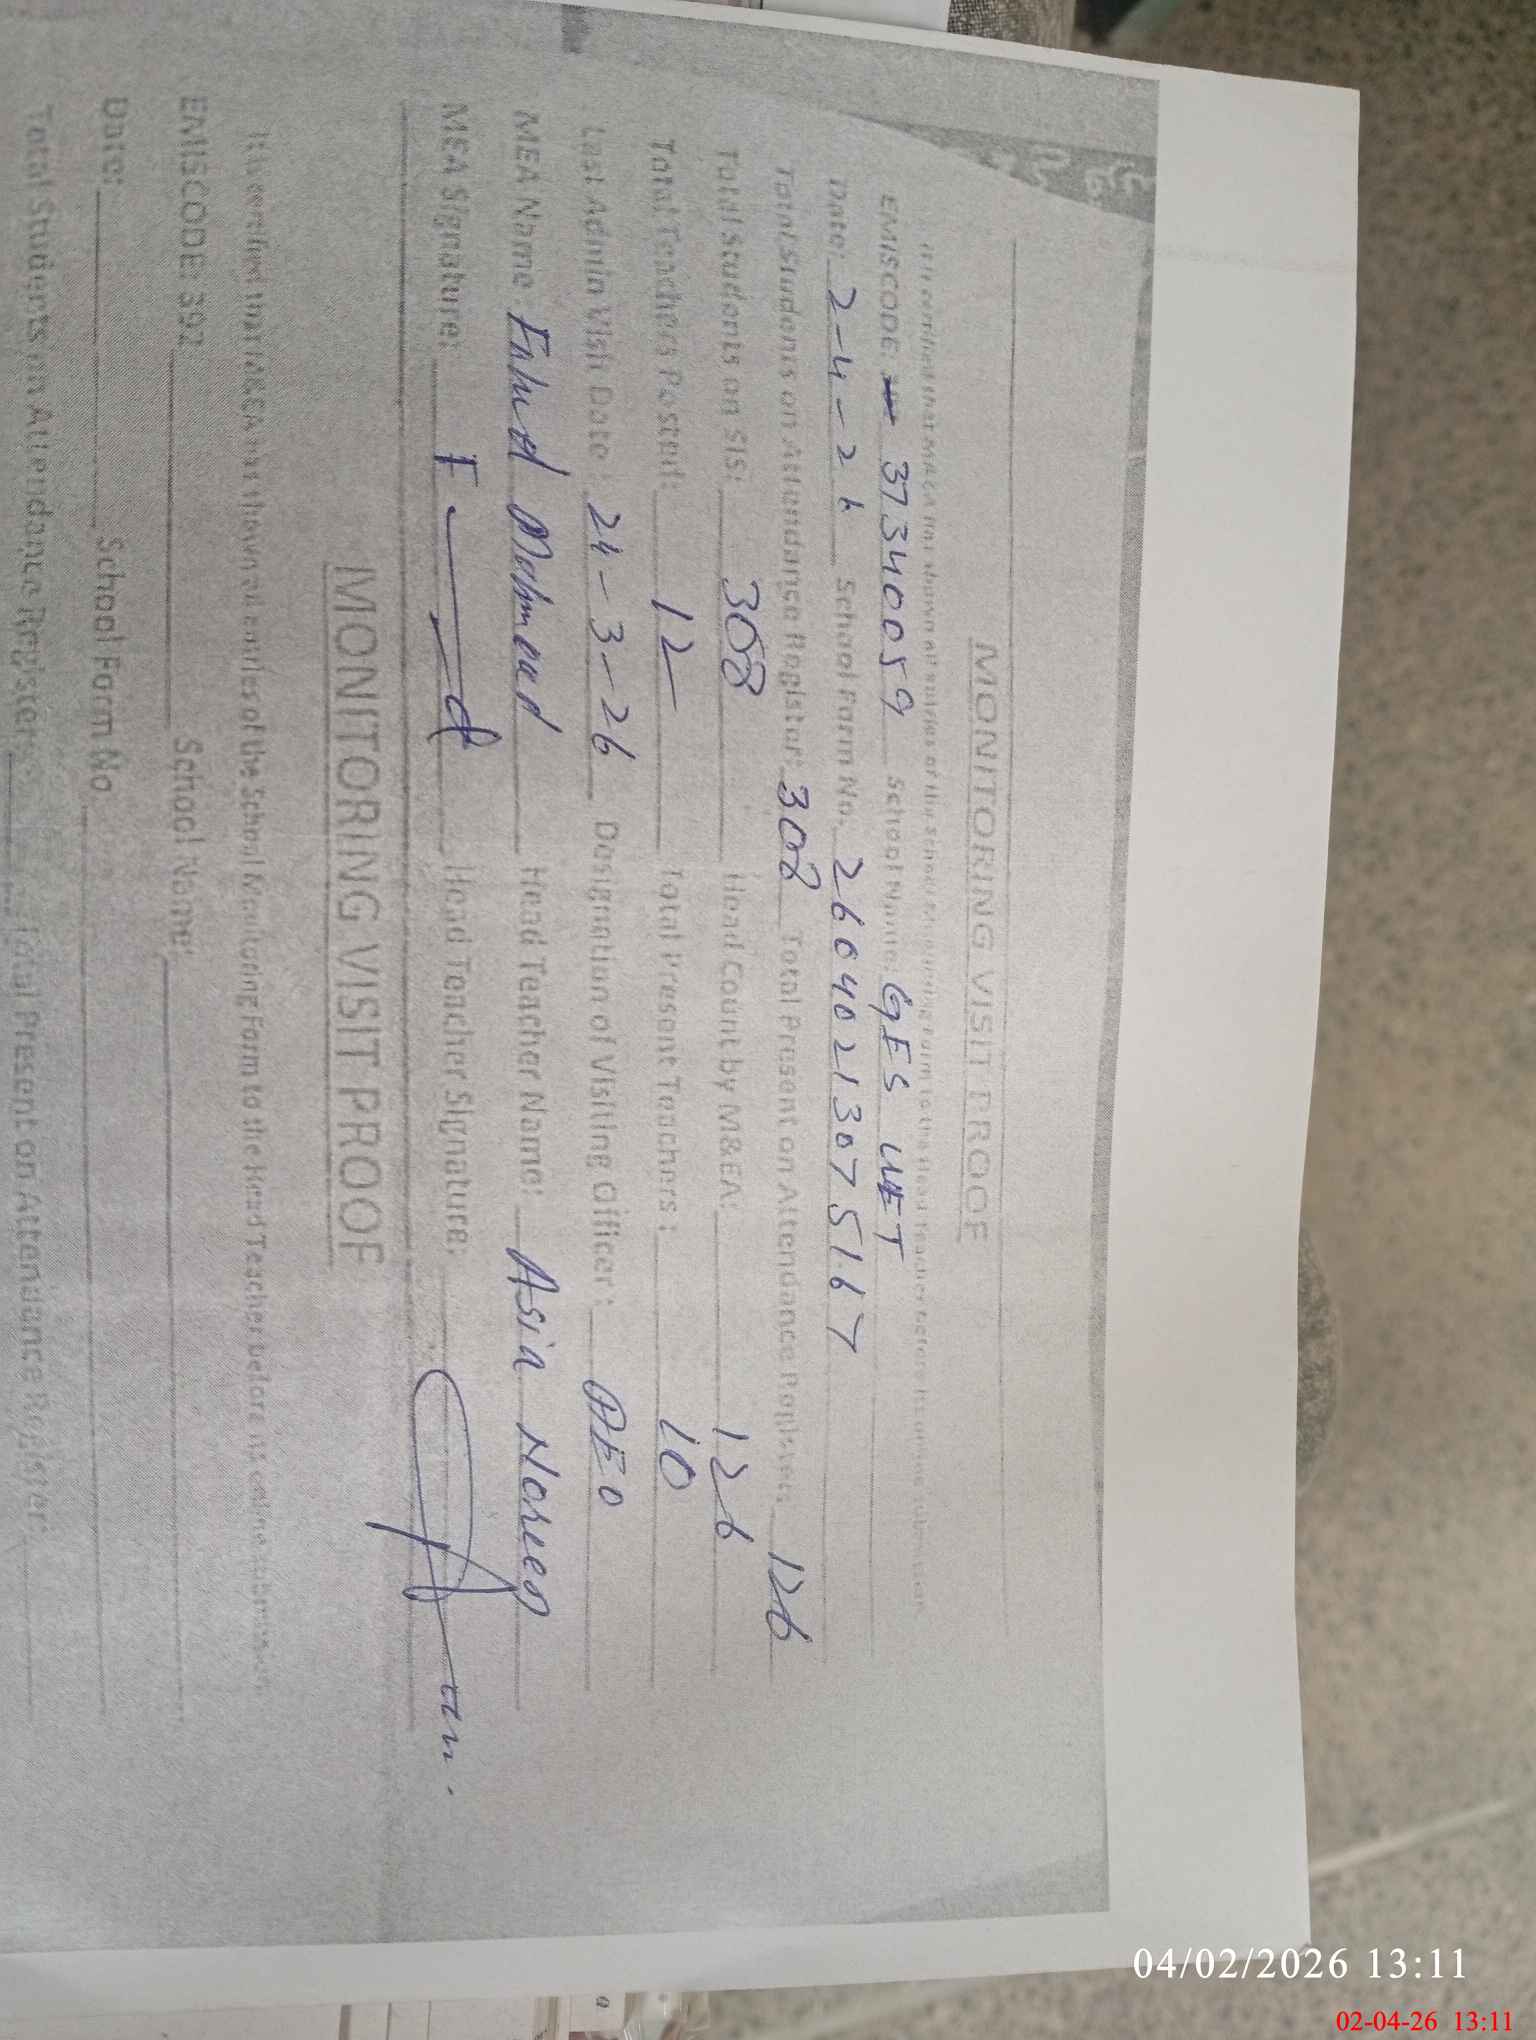 MONITORING VISIT PROOF
It is certified that M&EA has shown all entries of the School Monitoring Form to the Head Teacher before its online submission.
EMISCODE: 37340059 School Name: GES WET
Date: 2-4-26 School Form No. 26040213075167
Total Students on Attendance Register: 308 Total Present on Attendance Register: 126
Total students on SIS: 308 Head Count by M&EA: 126
Total Teachers Posted: 12 Total Present Teachers: 10
Last Admin Visit Date: 24-3-26 Designation of Visiting Officer: AEO
MEA Name Fahad Mahmood Head Teacher Name: Asia Noreen
MEA Signature: F d Head Teacher Signature:
MONITORING VISIT PROOF
It is certified that M&EA has shown all entries of the School Monitoring Form to the Head Teacher before its online submission.
EMISCODE: 392 School Name:
Date: School Form No
Total Students on Attendance Register: Total Present on Attendance Register:
04/02/2026 13:11
02-04-26 13:11